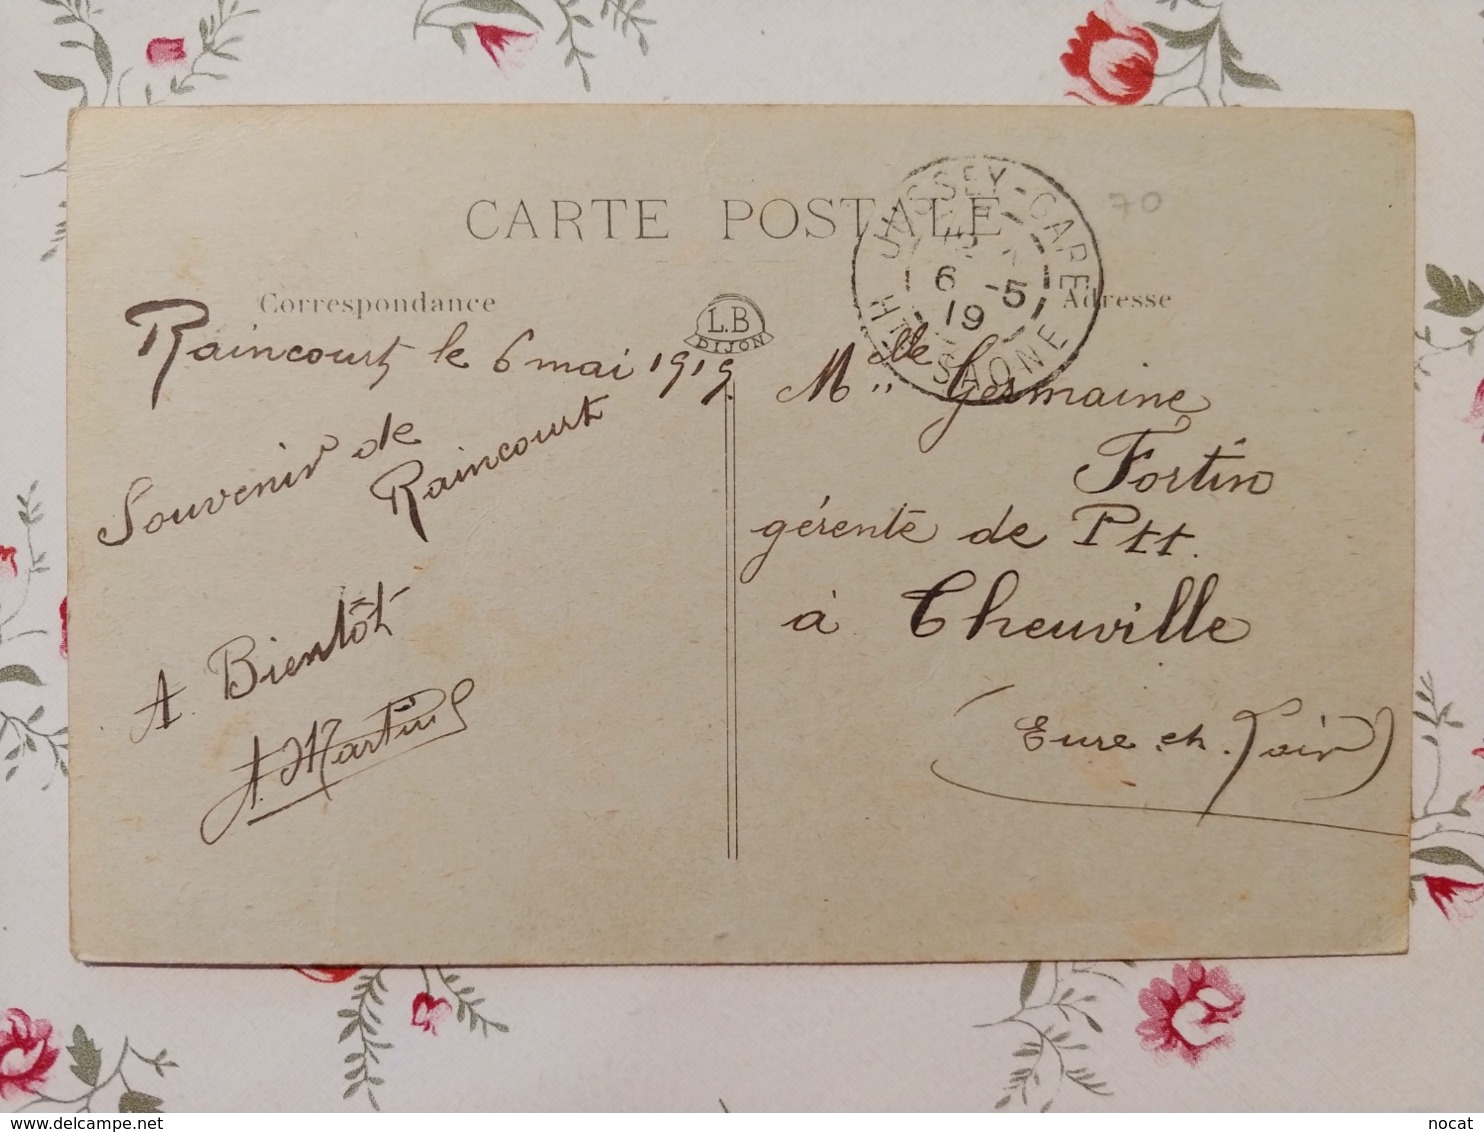 CARTE POSTALE
Correspondance
Raincourt le 6 mai 1919.
Souvenir de
Raincourt
A Bientôt
A. Martin
L.B
DIJON
JUSSEY-GARE
6 -5
19
HTE SAONE
70
Adresse
Mlle Germaine
Fortin
gérente de Ptt.
à Theuville
(Eure. et. Loir)
nocat